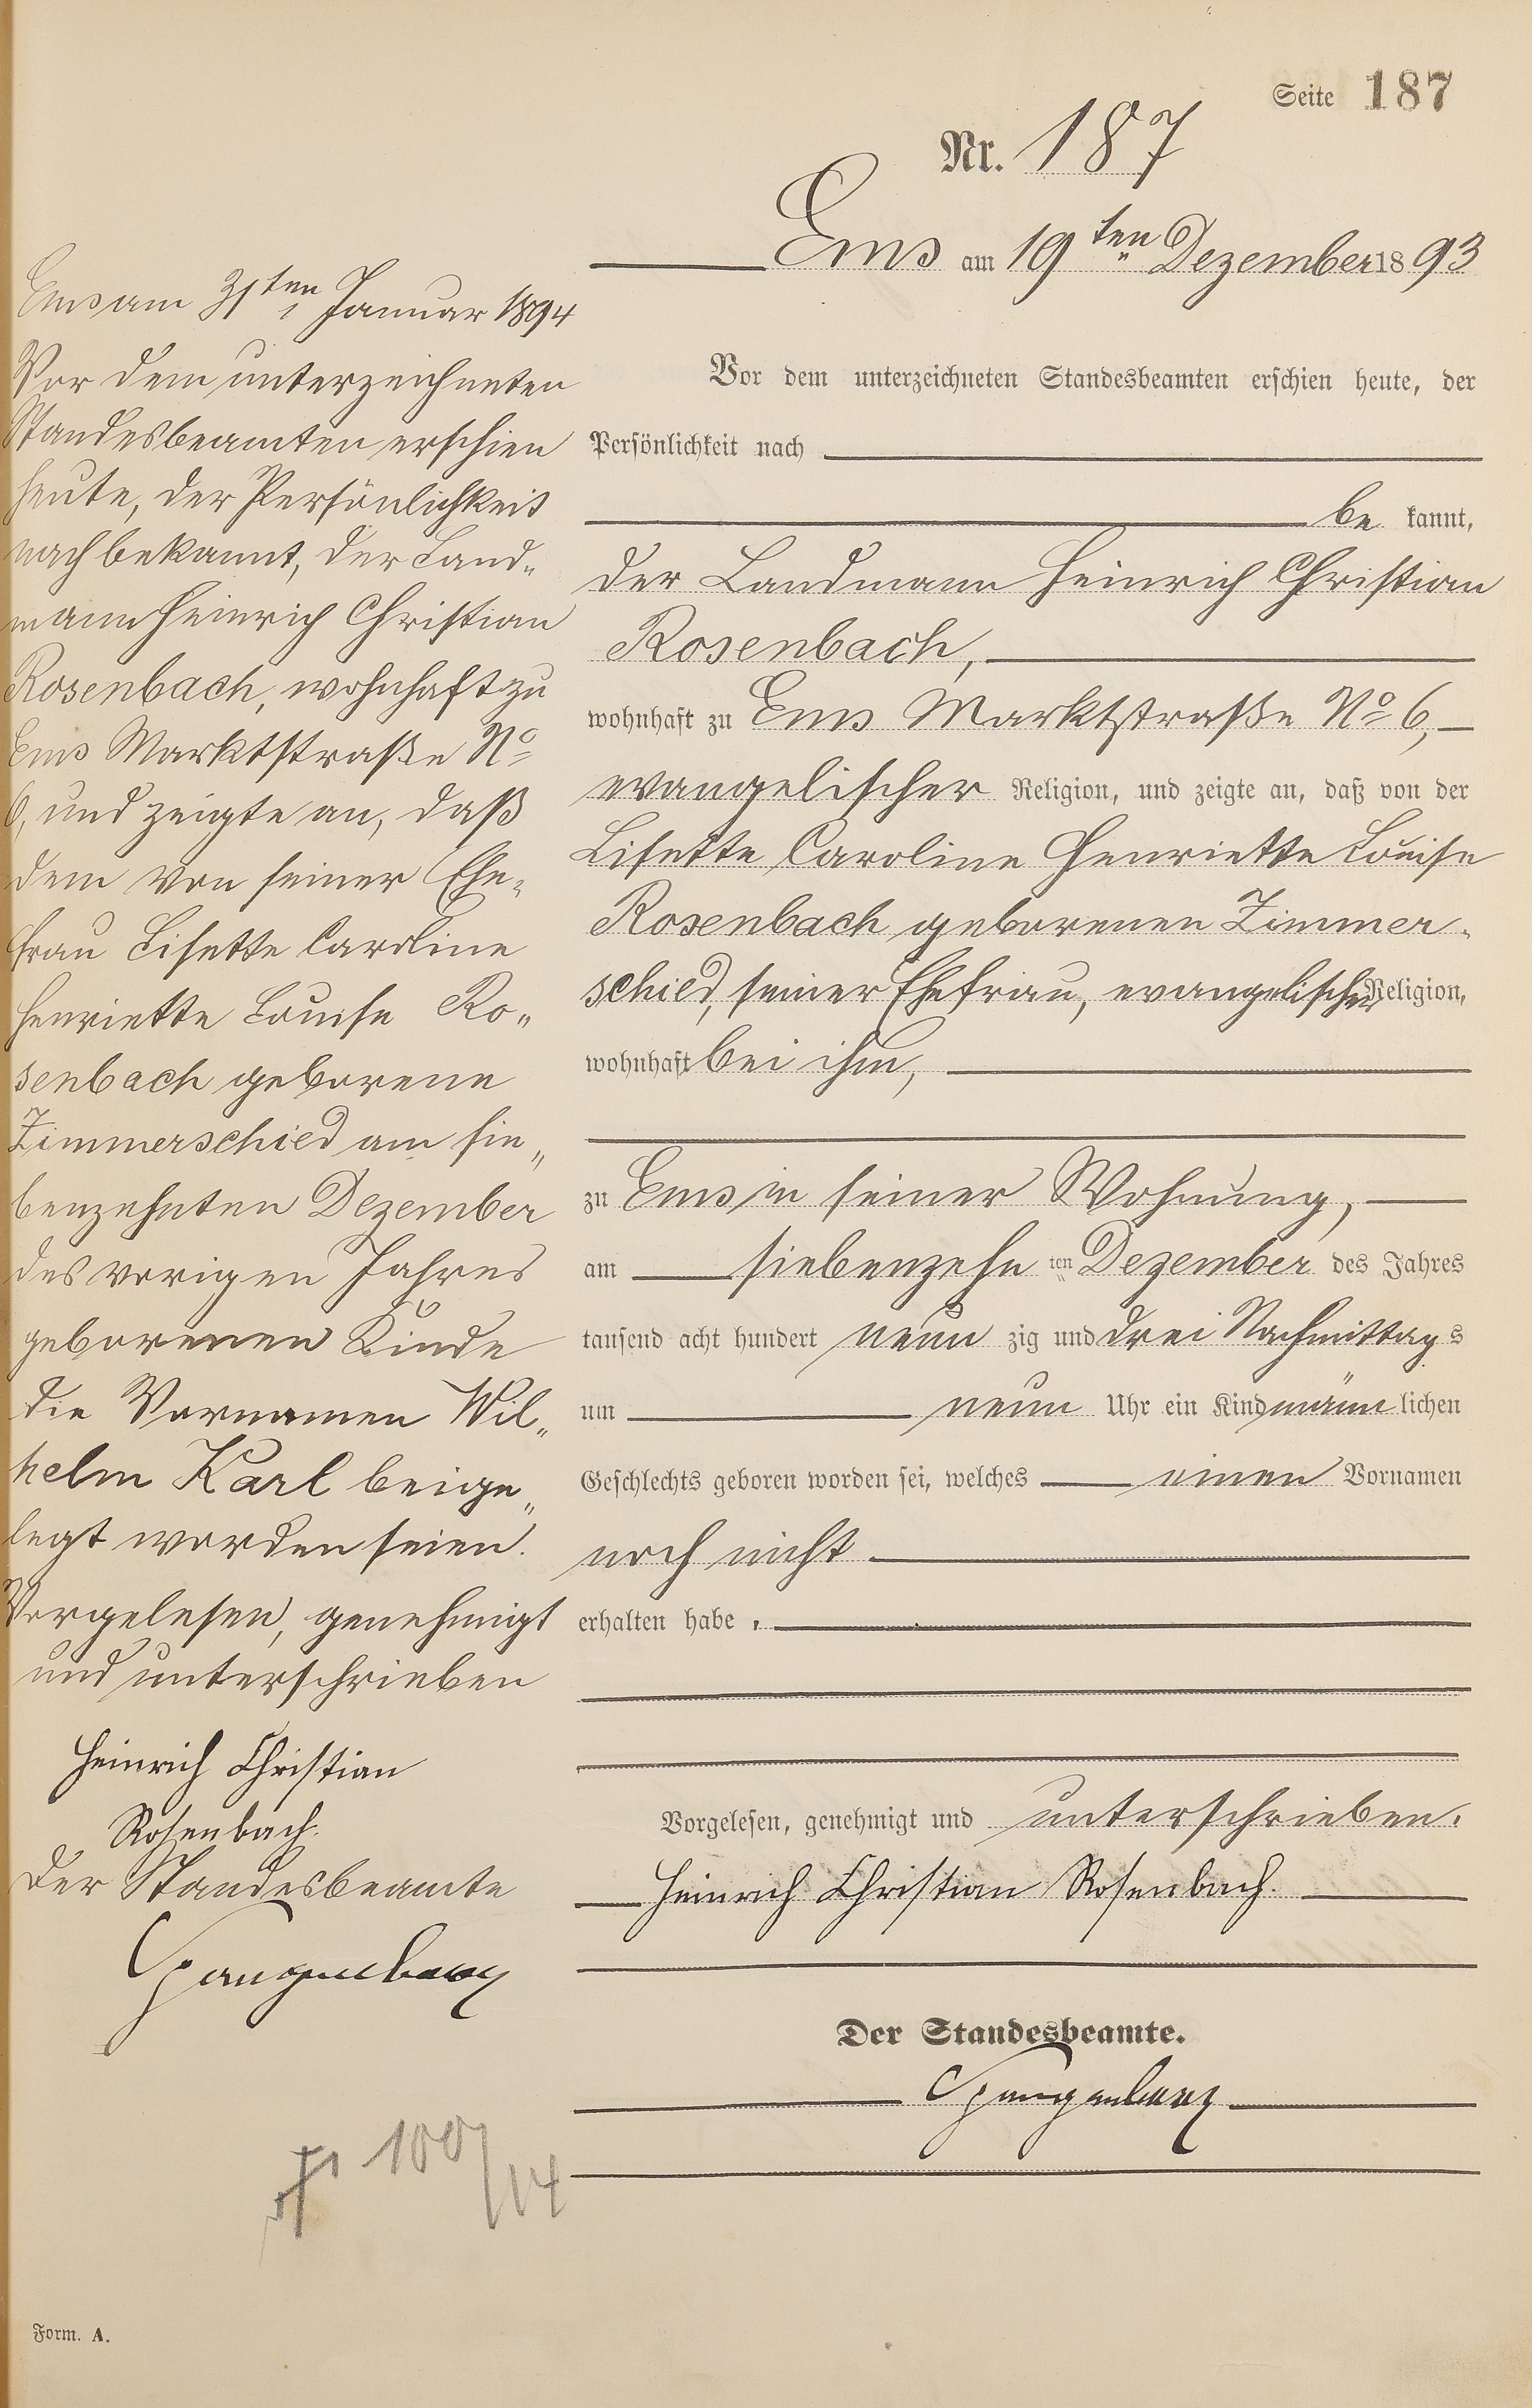 Seite 187
Nr. 187
Ems am 19ten Dezember 1893
Vor dem unterzeichneten Standesbeamten erschien heute, der
Persönlichkeit nach
be kannt,
der Landmann Heinrich Christian
Rosenbach,
wohnhaft zu Ems Marktstraße No 6,
evangelischer Religion, und zeigte an, daß von der
Lisette Caroline Henriette Louise
Rosenbach geborenen Zimmer-
schied, seiner Ehefrau, evangelischer Religion,
wohnhaft bei ihm,
zu Ems in seiner Wohnung,
am siebenzehn ten Dezember des Jahres
tausend acht hundert neun zig und drei Nachmittag s
um neun Uhr ein Kind männ lichen
Geschlechts geboren worden sei, welches einen Vornamen
noch nicht
erhalten habe.
Vorgelesen, genehmigt und unterschrieben.
Heinrich Christian Rosenbach.
Der Standesbeamte.
Spangenberg
Ems am 31ten Januar 1894
Vor dem unterzeichneten
Standesbeamten erschien
heute, der Persönlichkeit
nach bekannt, der Land-
mann Heinrich Christian
Rosenbach, wohnhaft zu
Ems Marktstraße No
6, und zeigte an, daß
dem von seiner Ehe-
frau Lisette Caroline
Henriette Louise Ro-
senbach geborene
Zimmerschied am sie-
benzehnten Dezember
des vorigen Jahres
geborenen Kinde
die Vornamen Wil-
helm Karl beige-
legt worden seien.
Vorgelesen, genehmigt
und unterschrieben
Heinrich Christian
Rosenbach.
Der Standesbeamte
Spangenberg
100/14
Form. A.